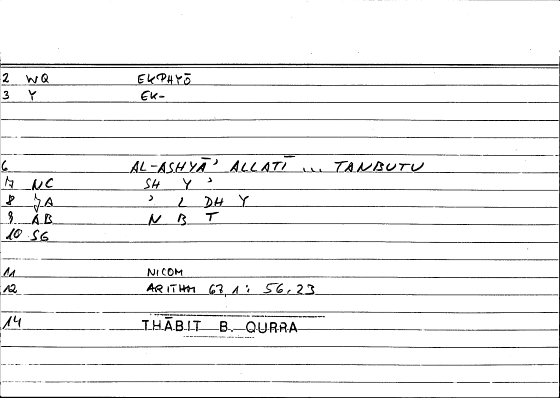 2 WQ EKPHYŌ
3 Y EK-
6 AL-ASHYĀʾ ALLATĪ ... TANBUTU
7 NC SH Y ʾ
8 JA ʾ L DH Y
9 AB N B T
10 SG
11 NICOM
12 ARITHM 67,1: 56,23
14 THĀBIT B. QURRA